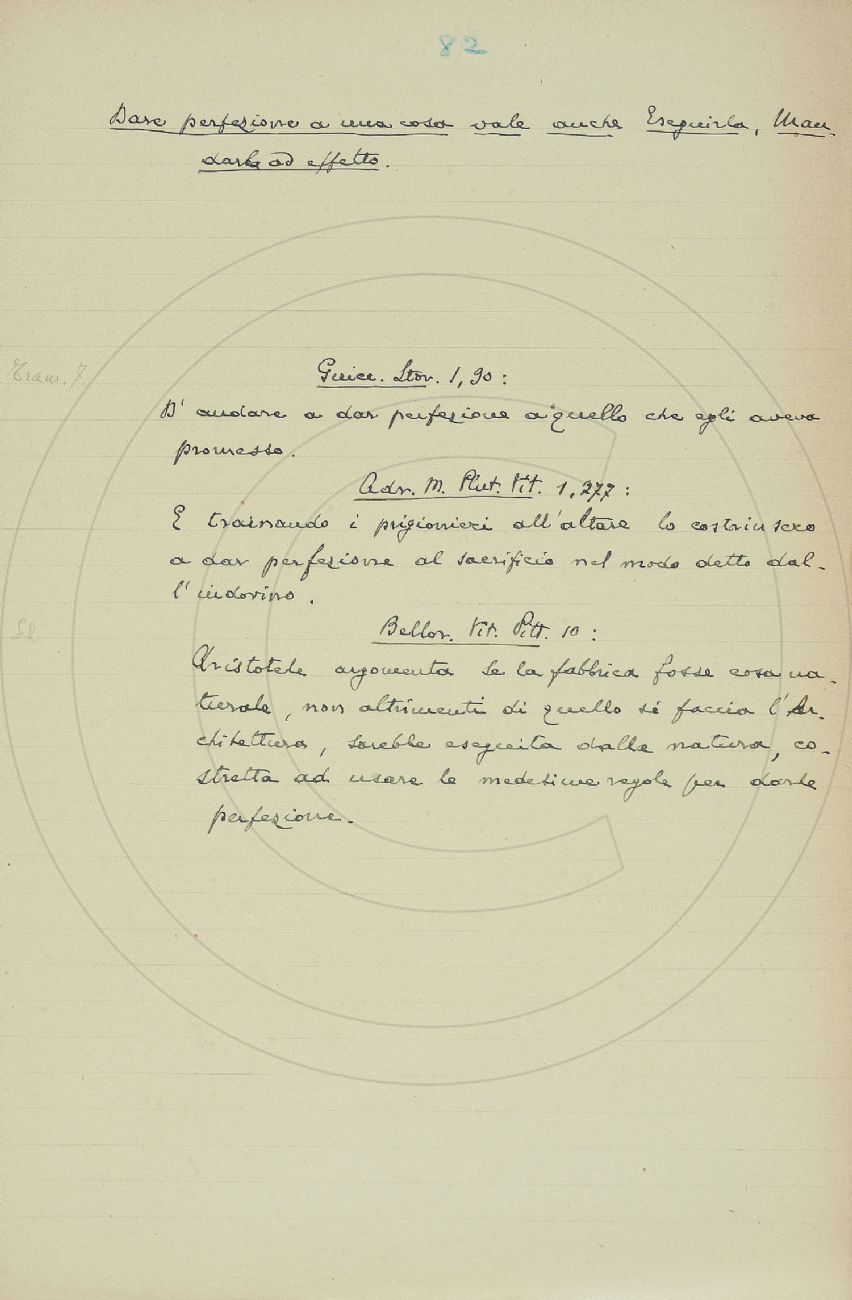 82
Dare perfezione a una cosa vale anche Eseguirla, Man-
darla ad effetto.
Guicc. Stor. 1, 90:
D' andare a dar perfezione a quello che egli aveva
promesso.
Adr. M. Plut. Vit. 1, 277:
E trainando i prigionieri all'altare lo costrinsero
a dar perfezione al sacrificio nel modo detto dal-
l'indovino.
Bellor. Vit. Pitt. 10:
Aristotele argomenta se la fabbrica fosse cosa na-
turale, non altrimenti di quello si faccia l'Ar-
chitettura, sarebbe eseguita dalla natura, co-
stretta ad usare le medesime regole per darle
perfezione.